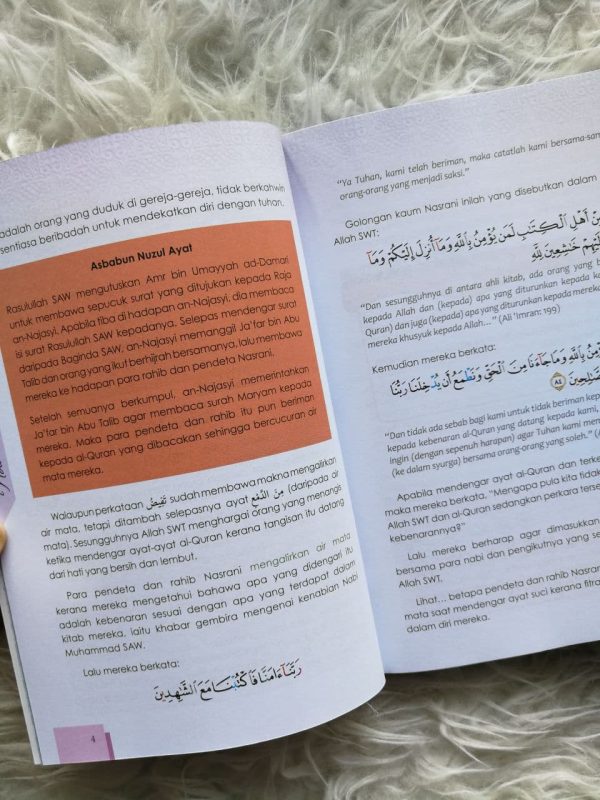 adalah orang yang duduk di gereja-gereja, tidak berkahwin
sentiasa beribadah untuk mendekatkan diri dengan tuhan.
Asbabun Nuzul Ayat
Rasulullah SAW mengutuskan Amr bin Umayyah ad-Damari
untuk membawa sepucuk surat yang ditujukan kepada Raja
an-Najasyi. Apabila tiba di hadapan an-Najasyi, dia membaca
isi surat Rasulullah SAW kepadanya. Selepas mendengar surat
daripada Baginda SAW, an-Najasyi memanggil Ja'far bin Abu
Talib dan orang yang ikut berhijrah bersamanya, lalu membawa
mereka ke hadapan para rahib dan pendeta Nasrani.
Setelah semuanya berkumpul, an-Najasyi memerintahkan
Ja'far bin Abu Talib agar membaca surah Maryam kepada
mereka. Maka para pendeta dan rahib itu pun beriman
kepada al-Quran yang dibacakan sehingga bercucuran air
mata mereka.
Walaupun perkataan تَفِيضُ sudah membawa makna mengalirkan
air mata, tetapi ditambah selepasnya ayat مِنَ الدَّمْعِ (daripada air
mata). Sesungguhnya Allah SWT menghargai orang yang menangis
ketika mendengar ayat-ayat al-Quran kerana tangisan itu datang
dari hati yang bersih dan lembut.
Para pendeta dan rahib Nasrani mengalirkan air mata
kerana mereka mengetahui bahawa apa yang didengari itu
adalah kebenaran sesuai dengan apa yang terdapat dalam
kitab mereka, iaitu khabar gembira mengenai kenabian Nabi
Muhammad SAW.
Lalu mereka berkata:
رَبَّنَآ ءَامَنَّا فَٱكْتُبْنَا مَعَ ٱلشَّٰهِدِينَ
4
"Ya Tuhan, kami telah beriman, maka catatlah kami bersama-sam
orang-orang yang menjadi saksi."
Golongan kaum Nasrani inilah yang disebutkan dalam
Allah SWT:
مِنْ أَهْلِ ٱلْكِتَٰبِ لَمَن يُؤْمِنُ بِٱللَّهِ وَمَآ أُنزِلَ إِلَيْكُمْ وَمَآ
إِلَيْهِمْ خَٰشِعِينَ لِلَّهِ
"Dan sesungguhnya di antara ahli kitab, ada orang yang b
kepada Allah dan (kepada) apa yang diturunkan kepada k
Quran) dan juga (kepada) apa yang diturunkan kepada mereka
mereka khusyuk kepada Allah..." (Ali 'Imran: 199)
Kemudian mereka berkata:
نُؤْمِنُ بِٱللَّهِ وَمَا جَآءَنَا مِنَ ٱلْحَقِّ وَنَطْمَعُ أَن يُدْخِلَنَا رَبُّنَا
ٱلصَّٰلِحِينَ ٨٤
"Dan tidak ada sebab bagi kami untuk tidak beriman kep
kepada kebenaran al-Quran yang datang kepada kami,
ingin (dengan sepenuh harapan) agar Tuhan kami men
(ke dalam syurga) bersama orang-orang yang soleh." (A
Apabila mendengar ayat al-Quran dan terke
maka mereka berkata, "Mengapa pula kita tidak
Allah SWT dan al-Quran sedangkan perkara terse
kebenarannya?"
Lalu mereka berharap agar dimasukkan
bersama para nabi dan pengikutnya yang se
Allah SWT.
Lihat... betapa pendeta dan rahib Nasran
mata saat mendengar ayat suci kerana fitra
dalam diri mereka.